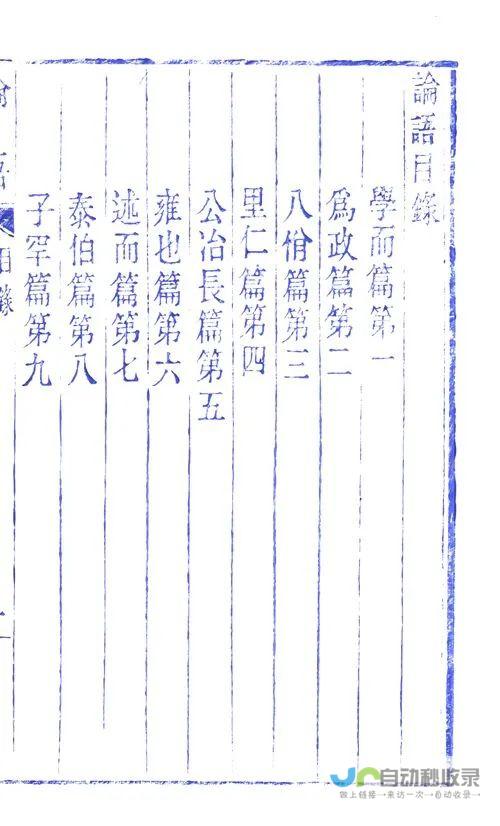 論語目錄
學而篇第一
爲政篇第二
八佾篇第三
里仁篇第四
公冶長篇第五
雍也篇第六
述而篇第七
泰伯篇第八
子罕篇第九
論語
目錄
一
自动秒收录
做上链接→来访一次→自动收录→